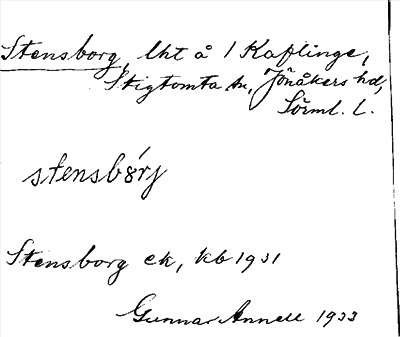 Stensborg, lht å 1 Kaflinge,
Stigtomta sn, Jönåkers hd,
Sörml. l.
stensbórj
Stensborg ek, kb 1931
Gunnar Annell 1933